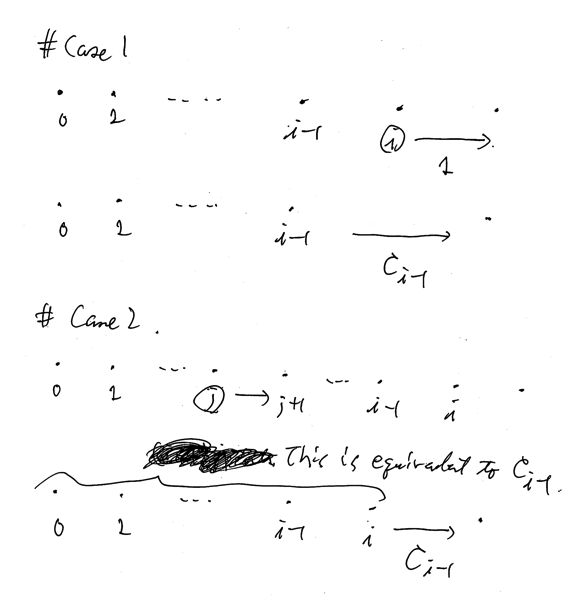 # Case 1
0 1 ---- i-1 i → 1
0 1 ---- i-1 → C_{i-1}
# Case 2.
0 1 --- j → j+1 --- i-1 i
This is equivalent to C_{i-1}.
0 1 --- i-1 i → C_{i-1}